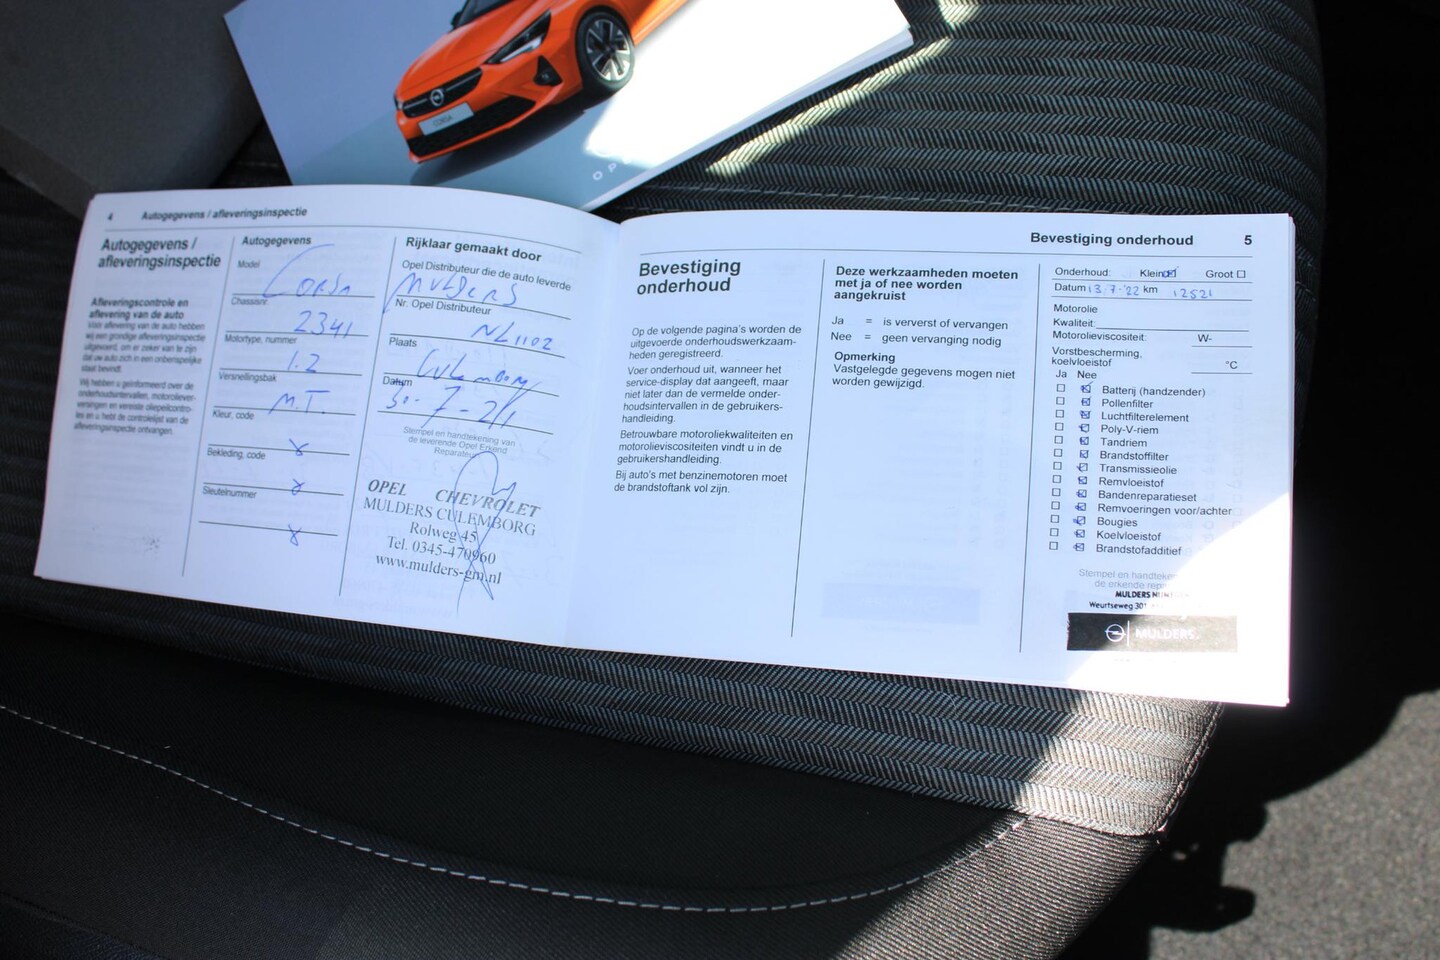 CORSA
OP
4 Autogegevens / afleveringsinspectie
Autogegevens /
afleveringsinspectie
Afleveringscontrole en
aflevering van de auto
Voor aflevering van de auto hebben
wij een grondige afleveringsinspectie
uitgevoerd, om er zeker van te zijn
dat uw auto zich in een onberispelijke
staat bevindt.
Wij hebben u geïnformeerd over de
onderhoudsintervallen, motoroliever-
versingen en vereiste oliepeilcontro-
les en u hebt de controlelijst van de
afleveringsinspectie ontvangen.
Autogegevens
Model
Corsa
Chassisnr.
2341
Motortype, nummer
1.2
Versnellingsbak
M.T.
Kleur, code
Bekleding, code
Sleutelnummer
Rijklaar gemaakt door
Opel Distributeur die de auto leverde
MULDERS
Nr. Opel Distributeur
NL1102
Plaats
Culemborg
Datum
30-7-21
Stempel en handtekening van
de leverende Opel Erkend
Reparateur
OPEL CHEVROLET
MULDERS CULEMBORG
Rolweg 45
Tel. 0345-470960
www.mulders-gm.nl
Bevestiging onderhoud 5
Bevestiging
onderhoud
Op de volgende pagina's worden de
uitgevoerde onderhoudswerkzaam-
heden geregistreerd.
Voer onderhoud uit, wanneer het
service-display dat aangeeft, maar
niet later dan de vermelde onder-
houdsintervallen in de gebruikers-
handleiding.
Betrouwbare motoroliekwaliteiten en
motorolieviscositeiten vindt u in de
gebruikershandleiding.
Bij auto's met benzinemotoren moet
de brandstoftank vol zijn.
Deze werkzaamheden moeten
met ja of nee worden
aangekruist
Ja = is ververst of vervangen
Nee = geen vervanging nodig
Opmerking
Vastgelegde gegevens mogen niet
worden gewijzigd.
Onderhoud: Klein Groot
Datum 13-7-'22 km 12521
Motorolie
Kwaliteit:
Motorolieviscositeit: W-
Vorstbescherming,
koelvloeistof °C
Ja Nee
Batterij (handzender)
Pollenfilter
Luchtfilterelement
Poly-V-riem
Tandriem
Brandstoffilter
Transmissieolie
Remvloeistof
Bandenreparatieset
Remvoeringen voor/achter
Bougies
Koelvloeistof
Brandstofadditief
Stempel en handteken
de erkende repa
MULDERS
Weurtseweg 301
MULDERS